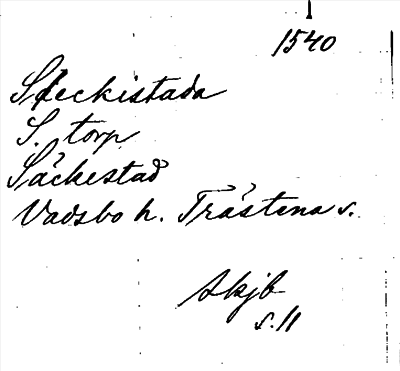 1540
Seckistada
S. torp
Säckestad
Vadsbo h. Trästena s.
Skjb
s. 11